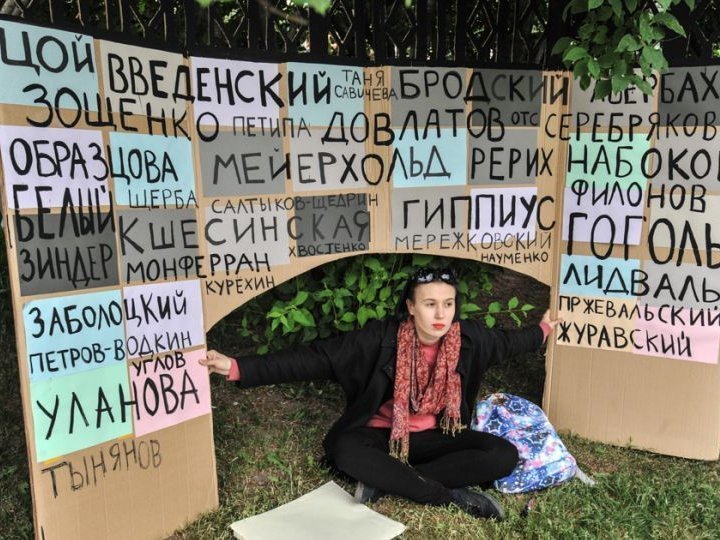 ЦОЙ
ВВЕДЕНСКИЙ
ТАНЯ САВИЧЕВА
БРОДСКИЙ
ЗОЩЕНКО
ПЕТИПА
ДОВЛАТОВ
ОТС
СЕРЕБРЯКОВ
ОБРАЗЦОВА
МЕЙЕРХОЛЬД
РЕРИХ
НАБОКОВ
ЩЕРБА
ФИЛОНОВ
БЕЛЫЙ
САЛТЫКОВ-ЩЕДРИН
ГИППИУС
КШЕСИНСКАЯ
ХВОСТЕНКО
МЕРЕЖКОВСКИЙ
ГОГОЛЬ
ЗИНДЕР
МОНФЕРРАН
НАУМЕНКО
КУРЕХИН
ЛИДВАЛЬ
ЗАБОЛОЦКИЙ
ПРЖЕВАЛЬСКИЙ
ПЕТРОВ-ВОДКИН
ЖУРАВСКИЙ
УГЛОВ
УЛАНОВА
ТЫНЯНОВ